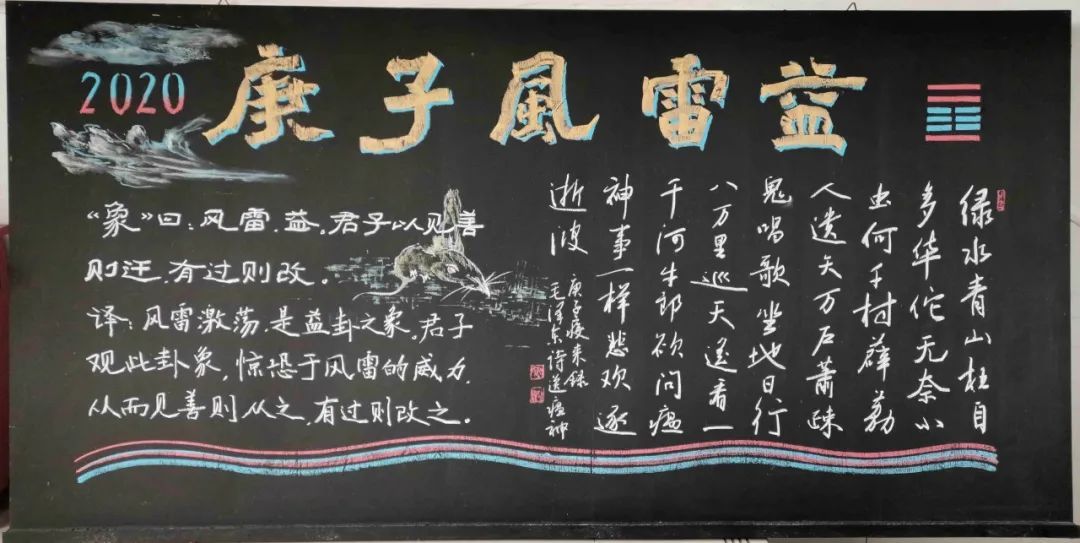 2020
庚子風雷益
“象”曰：风雷，益，君子以见善
则迁，有过则改。
译：风雷激荡，是益卦之象。君子
观此卦象，惊恐于风雷的威力，
从而见善则从之，有过则改之。
绿水青山枉自
多华佗无奈小
虫何千村薜荔
人遗矢万户萧疎
鬼唱歌坐地日行
八万里巡天遥看一
千河牛郎欲问瘟
神事一样悲欢逐
逝波
庚子疫来録
毛泽东诗送瘟神